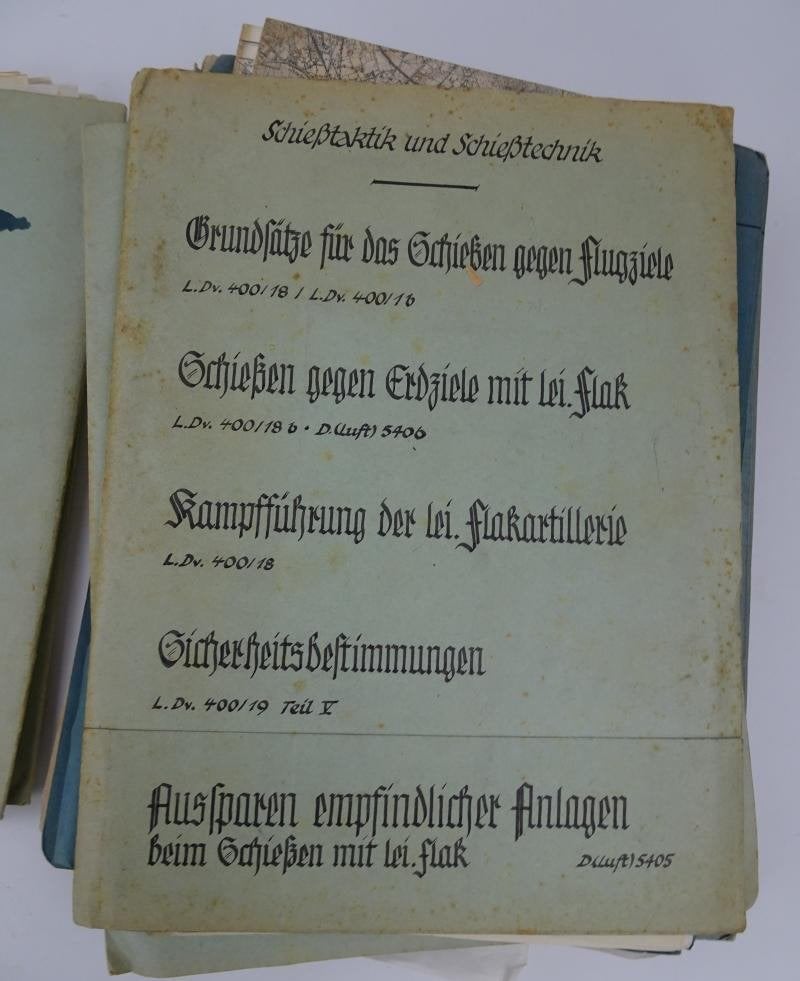 Schießtaktik und Schießtechnik
Grundsätze für das Schießen gegen Flugziele
L.Dv. 400/18 / L.Dv. 400/1b
Schießen gegen Erdziele mit lei. Flak
L.Dv. 400/18 b · D.(Luft) 5406
Kampfführung der lei. Flakartillerie
L.Dv. 400/18
Sicherheitsbestimmungen
L.Dv. 400/19 Teil V
Aussparen empfindlicher Anlagen
beim Schießen mit lei. Flak D(Luft) 5405